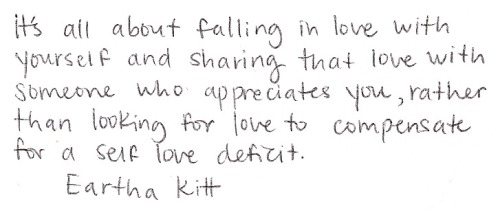 it's all about falling in love with
yourself and sharing that love with
someone who appreciates you, rather
than looking for love to compensate
for a self love deficit.
Eartha Kitt